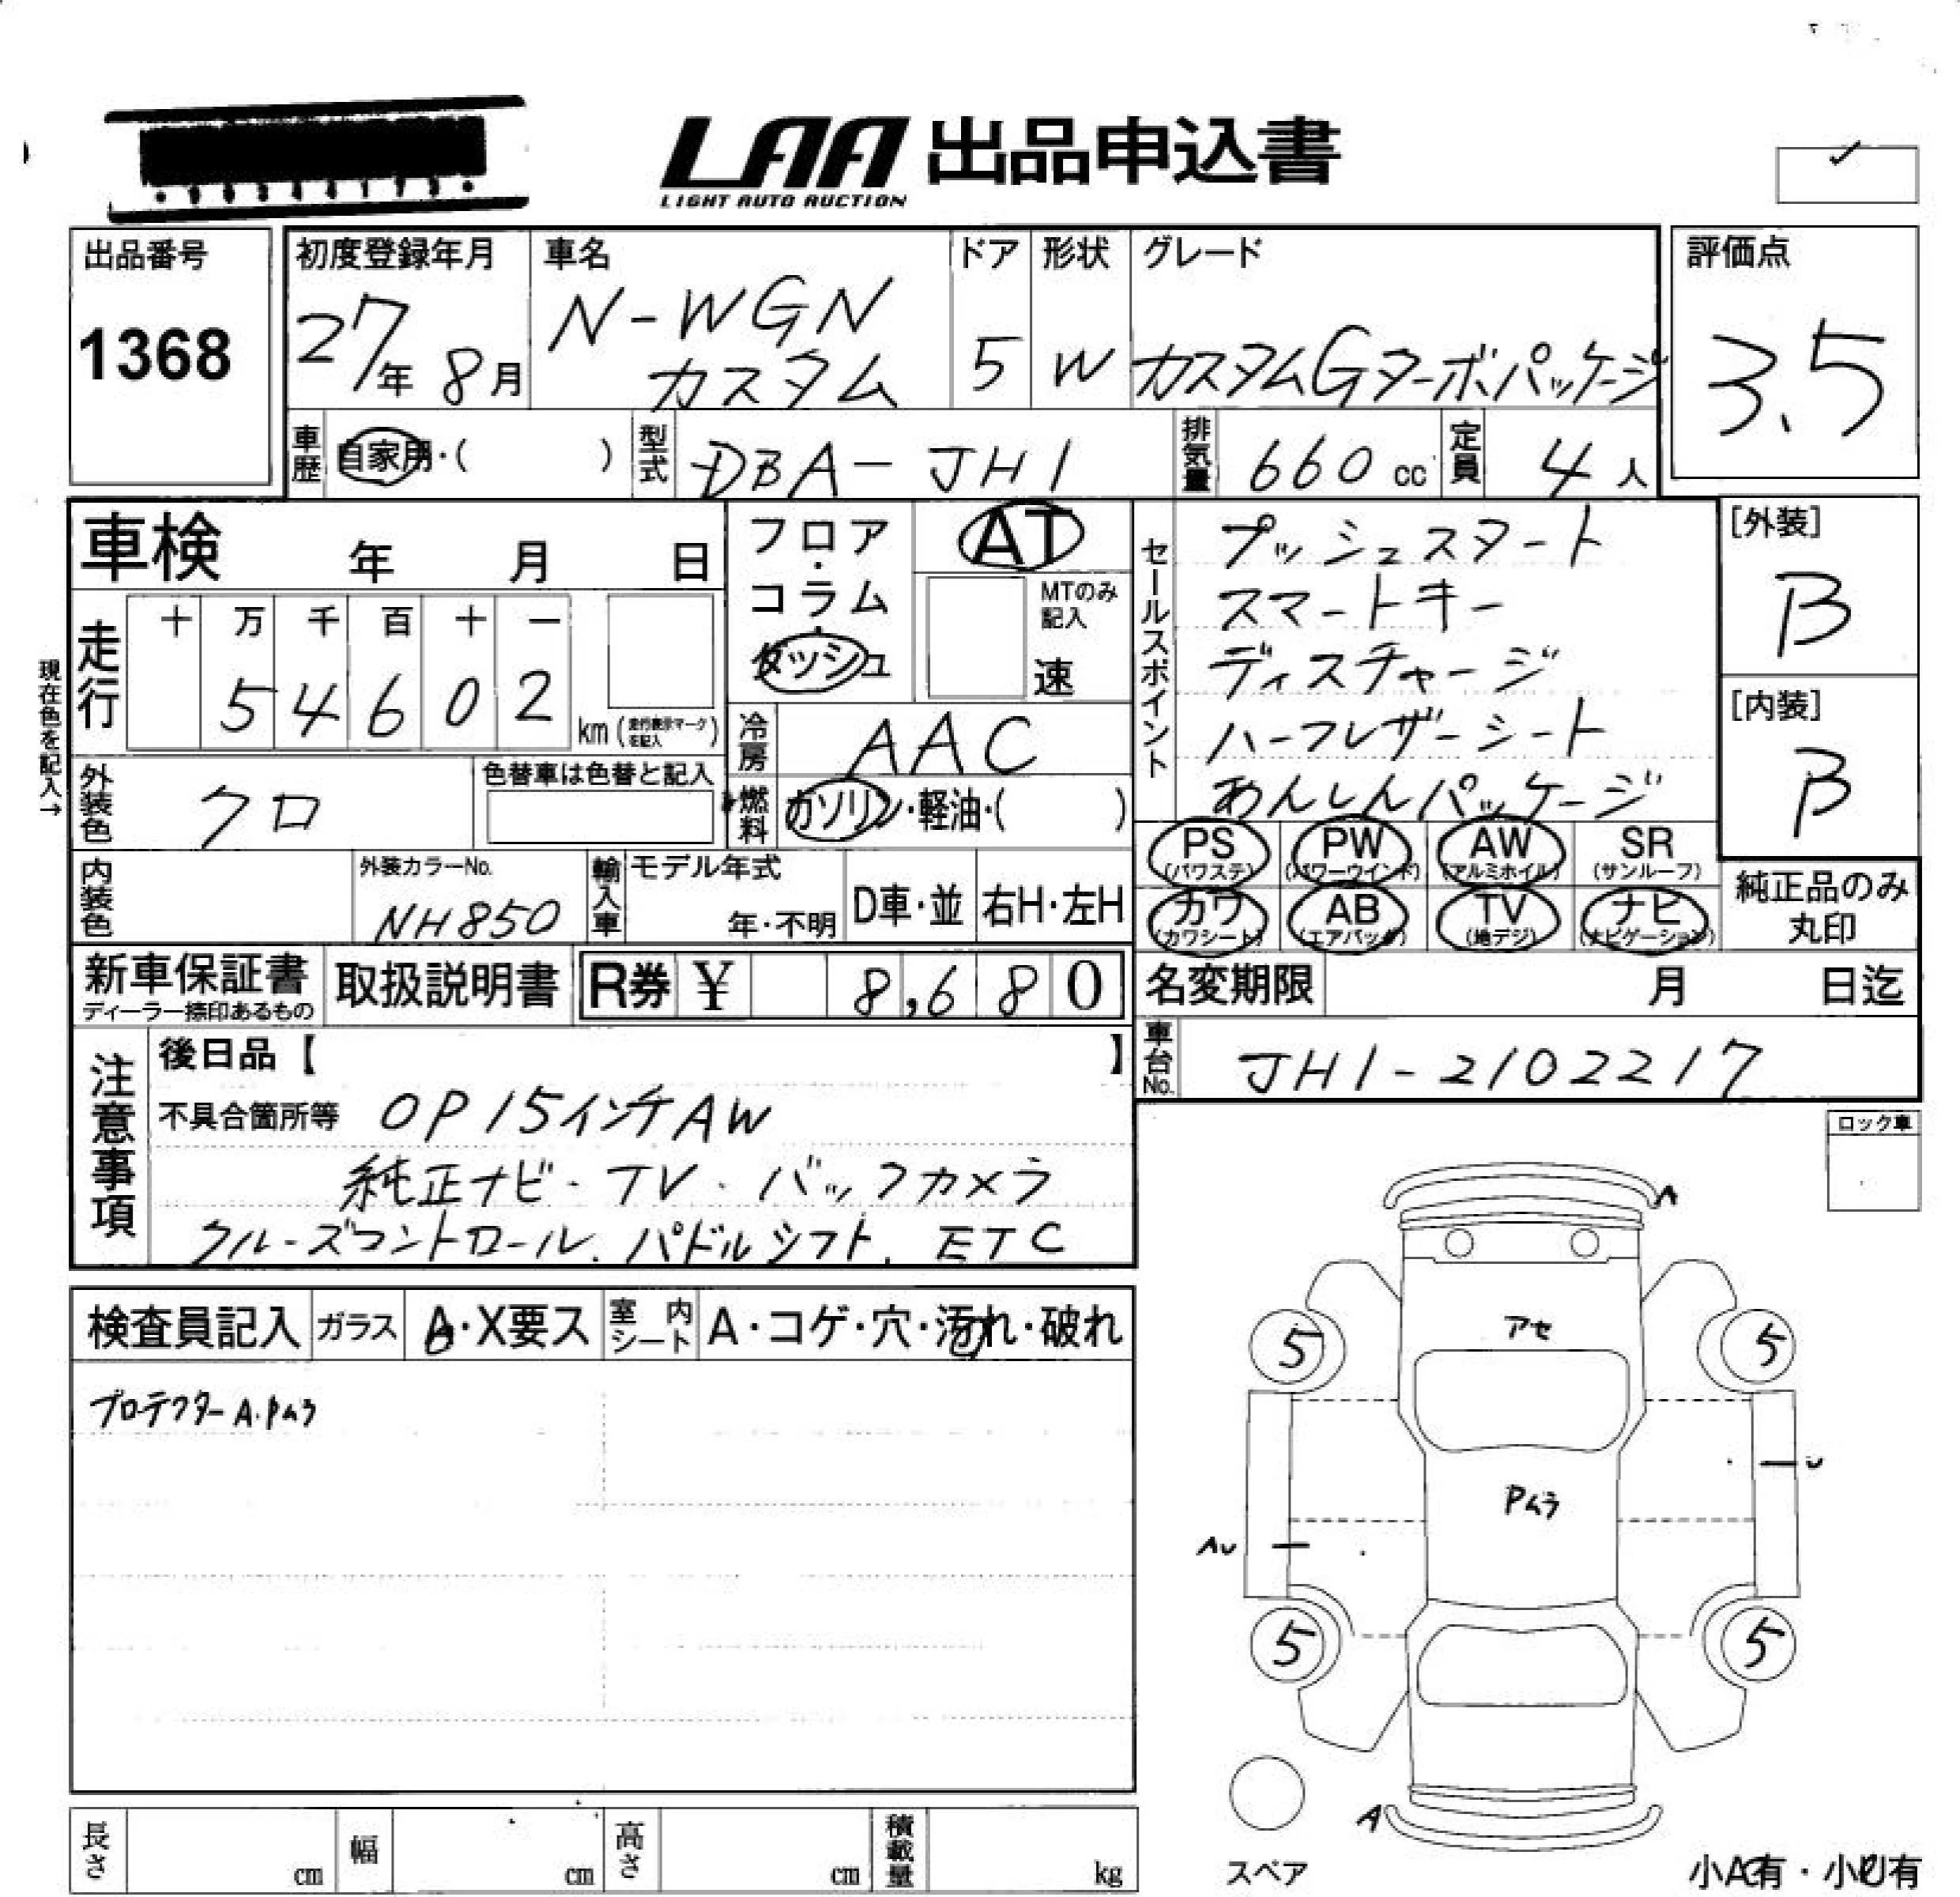 LAA 出品申込書
LIGHT AUTO AUCTION
出品番号
1368
初度登録年月
27年 8月
車名
N-WGN
カスタム
ドア
5
形状
W
グレード
カスタムGターボパッケージ
評価点
3.5
車歴
自家用・( )
型式
DBA-JH1
排気量
660 cc
定員
4人
車検 年 月 日
フロア・コラム・ダッシュ
AT
MTのみ記入
速
走行
十 万 千 百 十 一
5 4 6 0 2
km (走行表示マークを記入)
現在色を記入→
外装色
クロ
色替車は色替と記入
冷房
AAC
燃料
ガソリン・軽油・( )
内装色
外装カラーNo.
NH850
輸入車
モデル年式
年・不明
D車・並
右H・左H
セールスポイント
プッシュスタート
スマートキー
ディスチャージ
ハーフレザーシート
あんしんパッケージ
[外装]
B
[内装]
B
PS (パワステ)
PW (パワーウインド)
AW (アルミホイル)
SR (サンルーフ)
カワ (カワシート)
AB (エアバッグ)
TV (地デジ)
ナビ (ナビゲーション)
純正品のみ丸印
新車保証書
ディーラー捺印あるもの
取扱説明書
R券 ¥ 8,680
名変期限 月 日迄
車台No.
JH1-2102217
注意事項
後日品【 】
不具合箇所等 OP15インチAW
純正ナビ・TV・バックカメラ
クルーズコントロール、パドルシフト、ETC
検査員記入
ガラス
A・X要ス
室内シート
A・コゲ・穴・汚れ・破れ
プロテクターA.Pムラ
ロック車
A
アセ
5
5
U
Pムラ
AU
5
5
A
スペア
小A有・小U有
長さ cm
幅 cm
高さ cm
積載量 kg